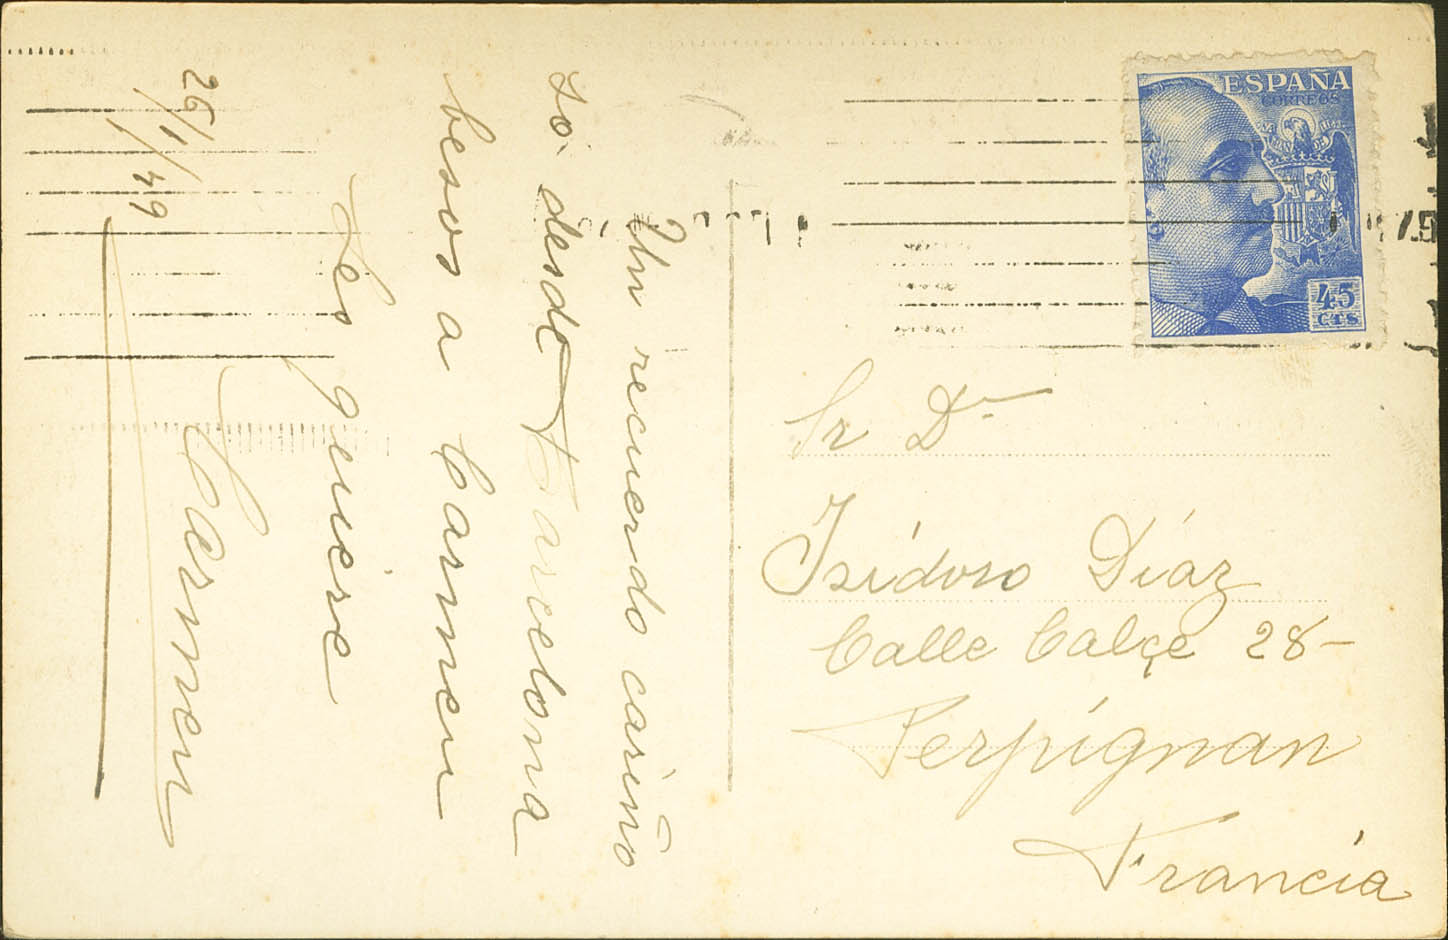 Un recuerdo cariño
so. desde Barcelona
besos a Carmen
Les quiere
Carmen
26/1/49
ESPAÑA
CORREOS
45
CTS
Sr Dn
Isídoro Díaz
Calle Calçe 28-
Perpígnan
Francía